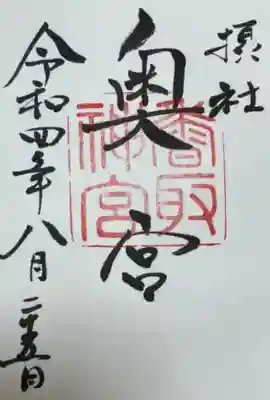 摂社
奥宮
香取神宮
令和四年八月二十五日